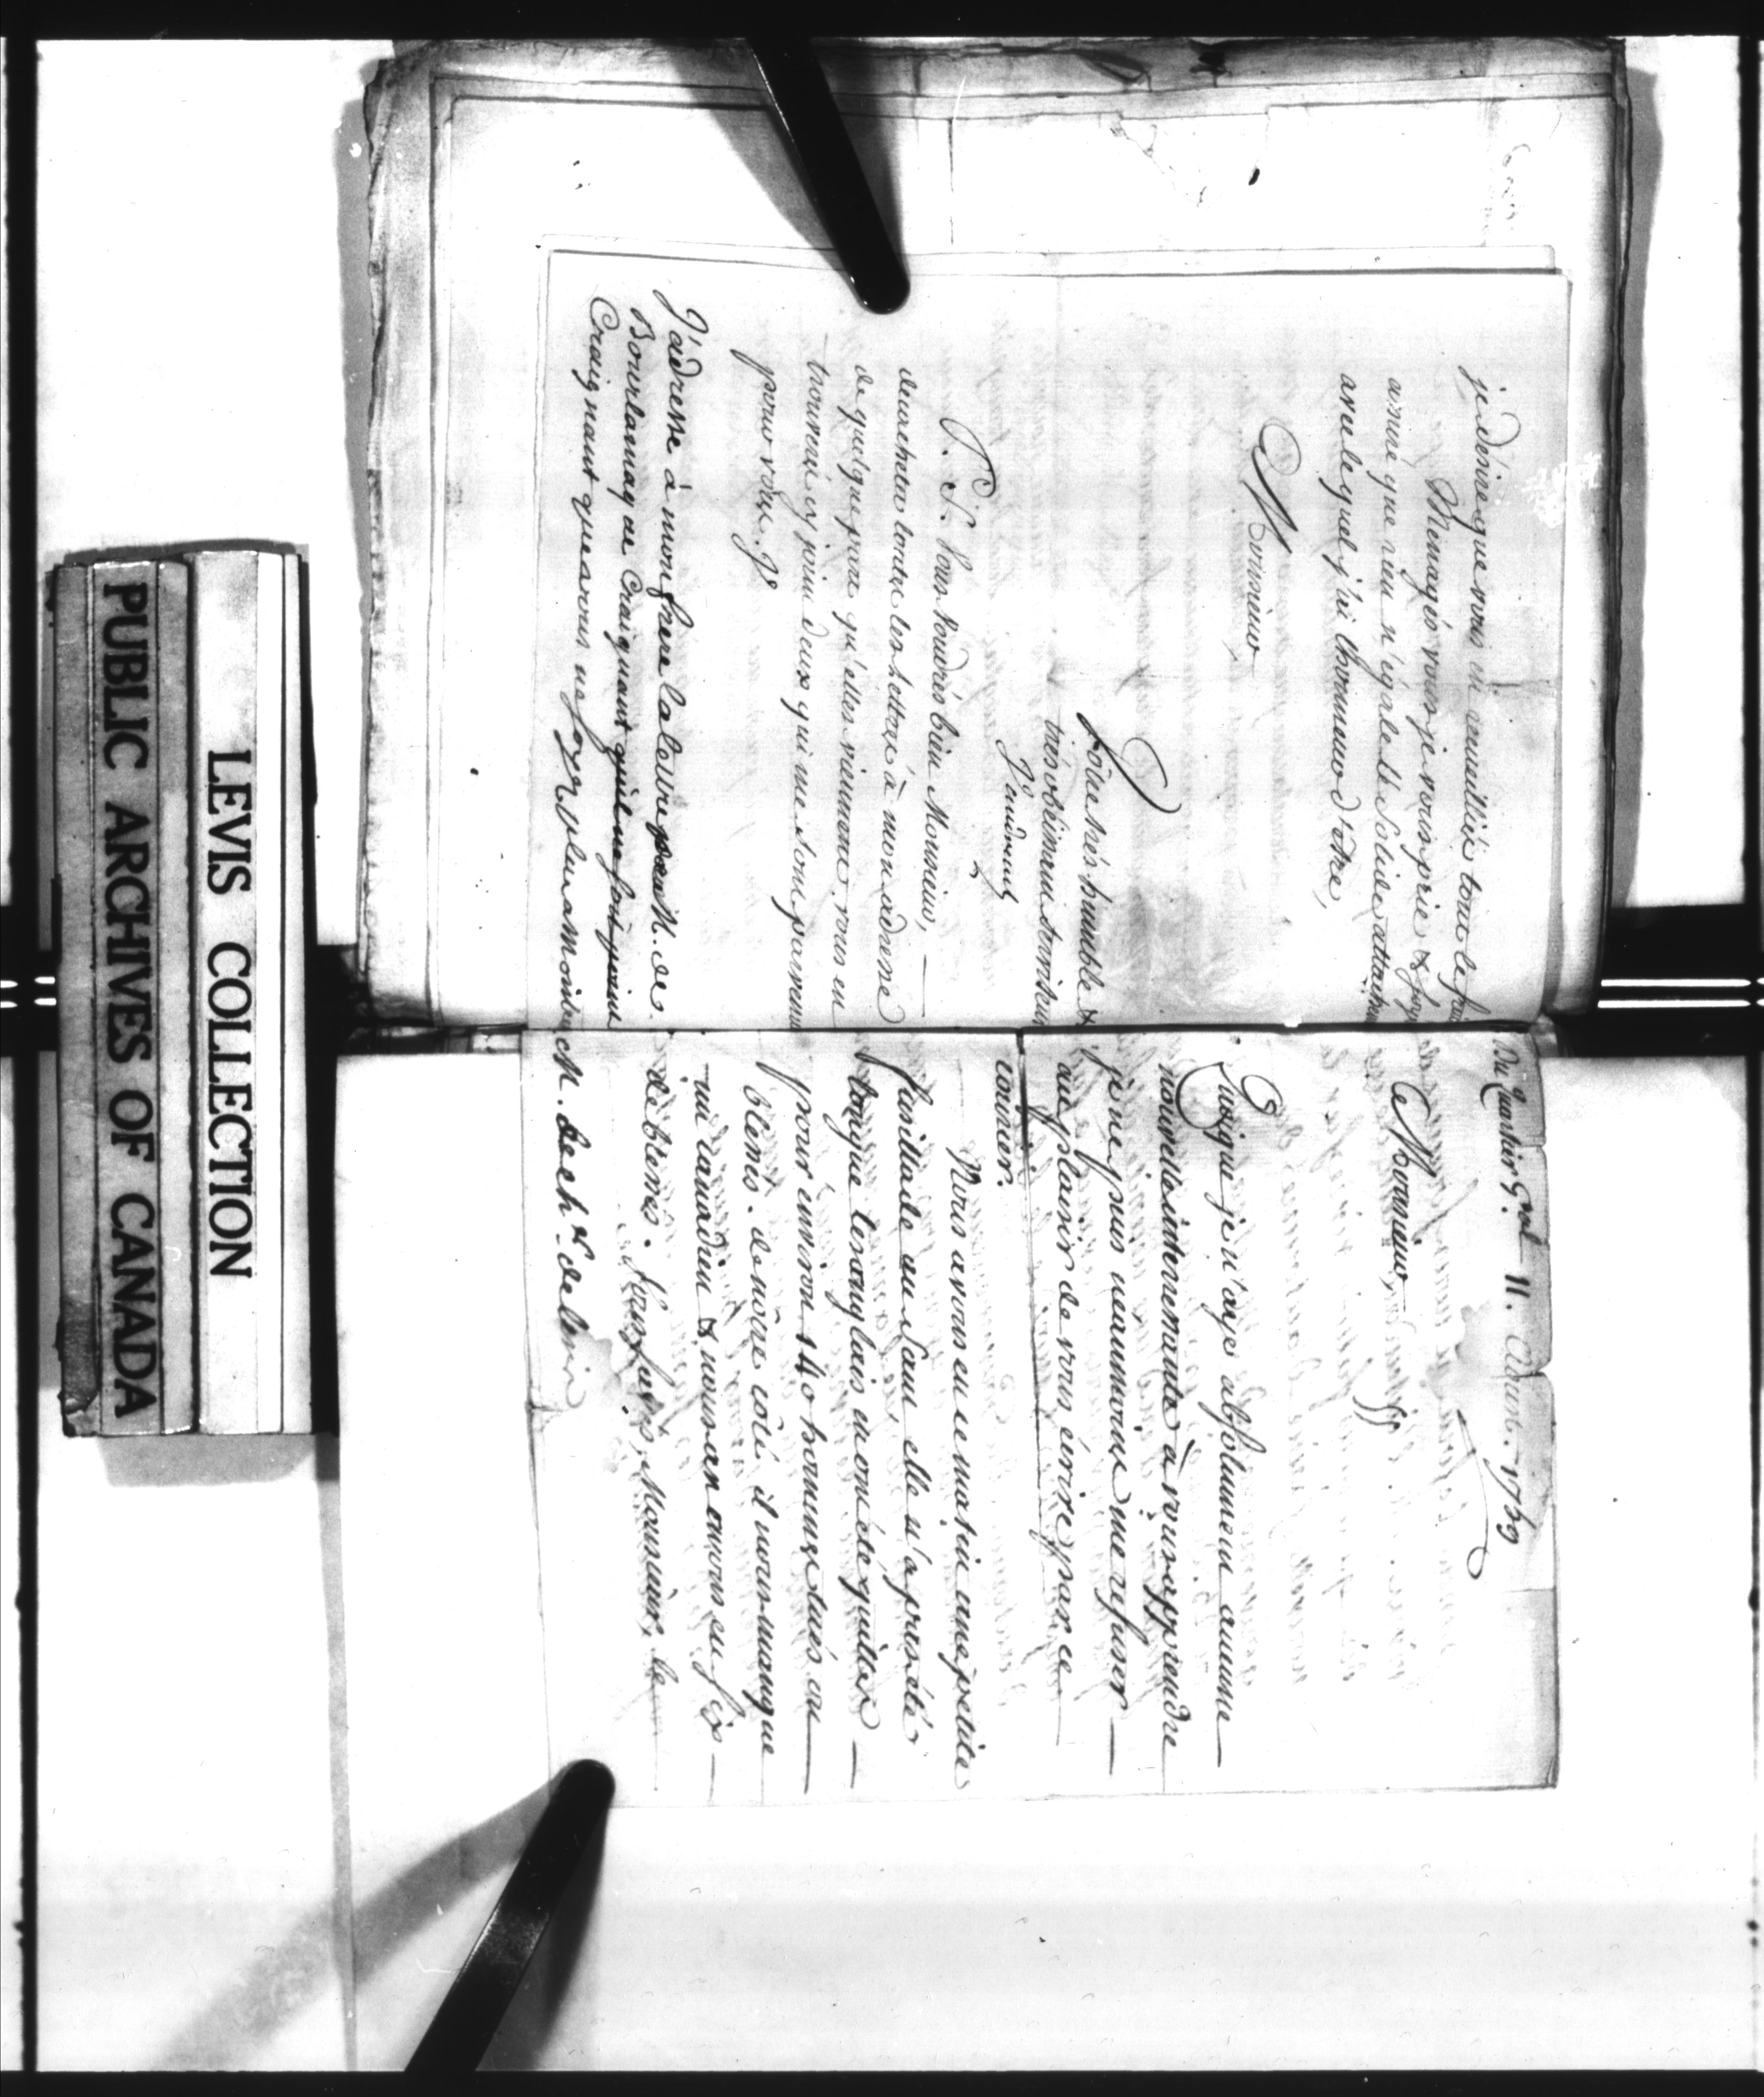 je désire que vous en cueilliés tout le fruit
Menagés vous je vous prie & soyés
assuré que rien n'égale le solide attachement
avec lequel j'ai l'honneur d'être,
Monsieur
Vôtre très humble &
très obéissant serviteur
Vaudreuil
P. S. Vous voudrés bien Monsieur,
décacheter toutes les lettres à mon adresse
de quelque part qu'elles viennent, vous en
trouverés cy joint deux qui me sont parvenues
pour vous. V
J'adresse à mon frere la lettre pour M. de
Bourlamaque Craignant qu'il ne soit point
Craignant que vous ne soyez plus a Montréal
Du Quartier Gnal 11. Aoust. 1759
Monsieur,
Quoique je n'aye absolument aucune
nouvelle interressante à vous apprendre
je ne puis neanmoins me refuser
au plaisir de vous écrire par ce
courier.
Nous avons eu ce matin une petite
fusillade au Saut elle n'a pas été
longue les anglais en ont été quittes
pour environ 140 hommes tués ou
blessés. de nôtre côté il nous manque
un canadien & nous en avons eu six
de blessés. Vous sçavés, Monsieur, le
M. de chr. de Levis
LEVIS COLLECTION
PUBLIC ARCHIVES OF CANADA